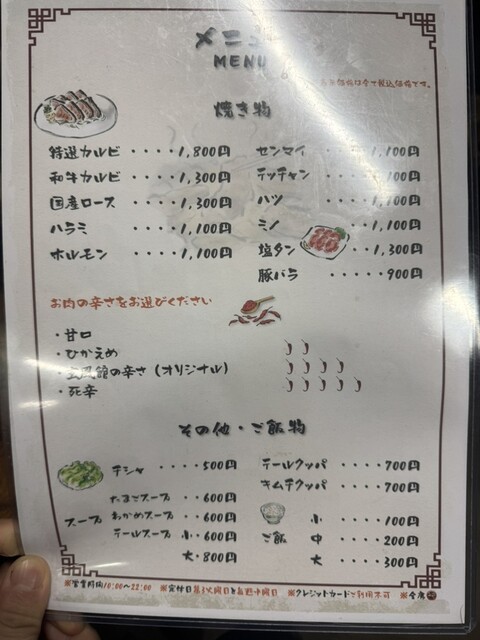 メニュー
MENU
焼き物
特選カルビ ････1,800円
和牛カルビ ････1,300円
国産ロース ････1,300円
ハラミ ･････1,100円
ホルモン ････1,100円
センマイ 1,100円
テッチャン ････1,100円
ハツ ･････1,100円
ミノ ･･1,100円
塩タン ･･1,300円
豚バラ ･････900円
お肉の辛さをお選びください
・甘口
・ひかえめ
館の辛さ(オリジナル)
・死辛
その他・ご飯物
チシャ ････500円
スープ
たまごスープ ･･600円
わかめスープ ･･600円
テールスープ 小･･600円
大･800円
テールクッパ ････700円
キムチクッパ ････700円
ご飯
小 ････100円
中 ････200円
大 ････300円
※営業時間10:00~22:00 ※定休日 ※クレジットカードご利用不可 ※全席